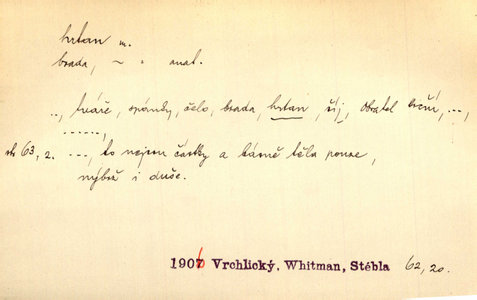 hrtan m.
brada, ~ " anat.
.., tváře, spánky, čelo, brada, hrtan, šíj, obratel krční, ...,
......,
str 63, 2. ..., to nejsou částky a básně těla pouze,
nýbrž i duše.
1906 Vrchlický, Whitman, Stébla 62, 20.